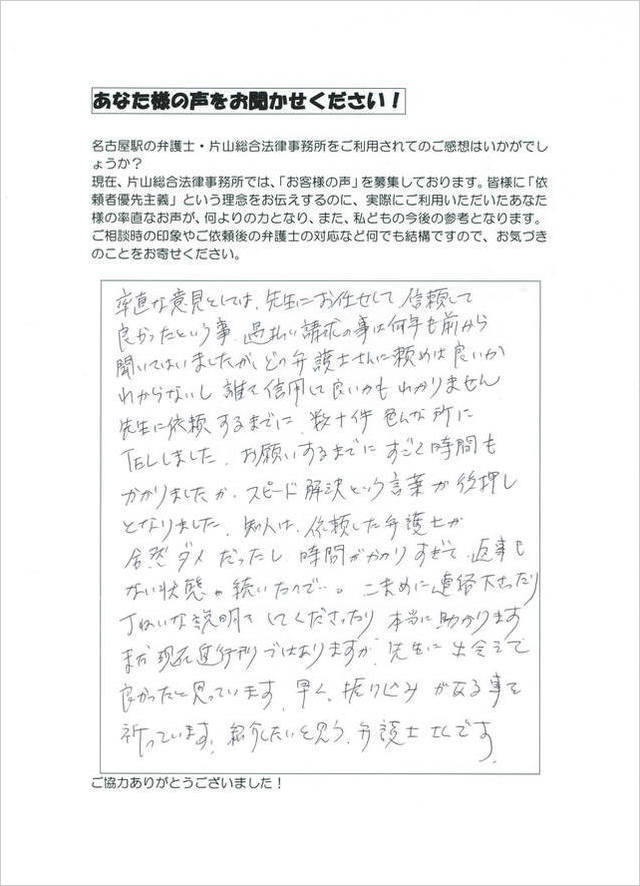 あなた様の声をお聞かせください！
名古屋駅の弁護士・片山総合法律事務所をご利用されてのご感想はいかがでし
ょうか？
現在、片山総合法律事務所では、「お客様の声」を募集しております。皆様に「依
頼者優先主義」という理念をお伝えするのに、実際にご利用いただいたあなた
様の率直なお声が、何よりの力となり、また、私どもの今後の参考となります。
ご相談時の印象やご依頼後の弁護士の対応など何でも結構ですので、お気づき
のことをお寄せください。
率直な意見としては、先生にお任せして信頼して
良かったという事 過払い請求の事は何年も前から
聞いてはいましたが、どの弁護士さんに頼めば良いか
わからないし 誰を信用して良いかも わかりません
先生に依頼するまでに 数十件 色んな所に
TELしました。お願いするまでに すごく時間も
かかりましたが、スピード解決という言葉が後押し
となりました。知人は、依頼した弁護士が
全然ダメだったし 時間がかかりすぎて、返事も
ない状態が続いたので…。こまめに連絡下さったり
丁ねいな説明をしてくださったり 本当に助かります
まだ現在進行形ではありますが、先生に出会えて
良かったと思っています。早く、振り込みがある事を
祈っています。紹介したいと思う、弁護士さんです。
ご協力ありがとうございました！